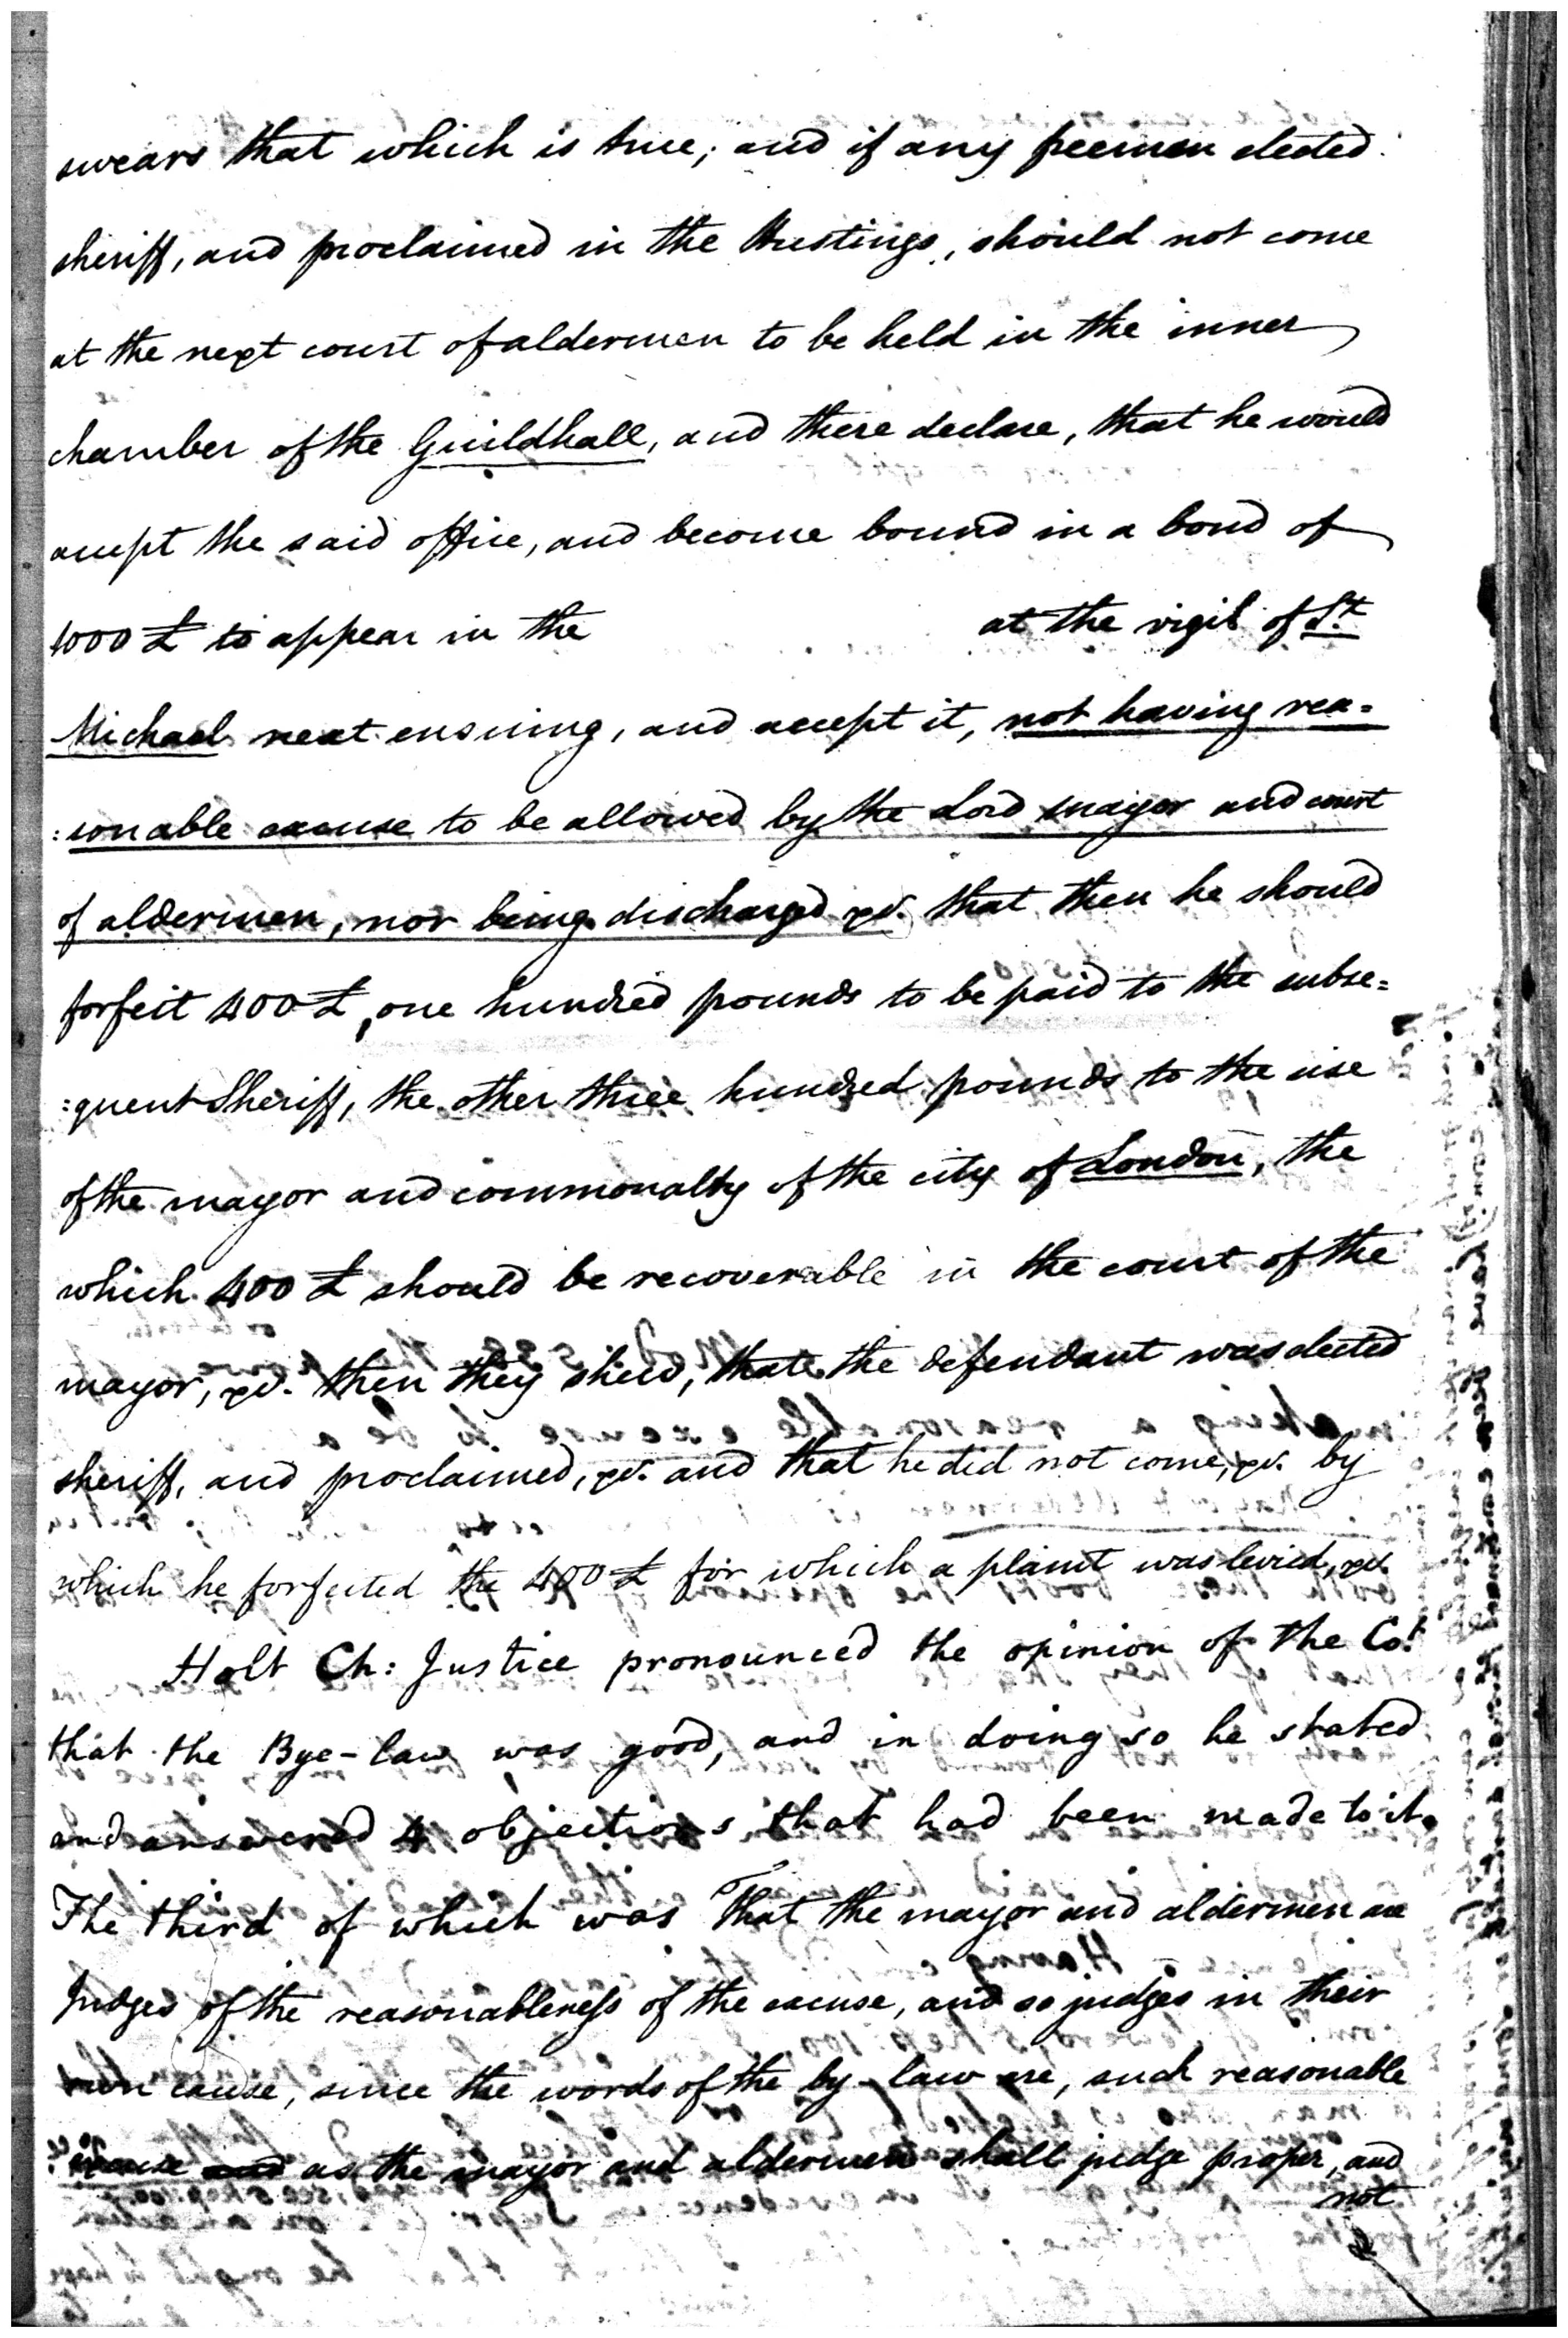 swears that which is true; and if any freeman elected
sheriff, and proclaimed in the Hustings, should not come
at the next court of aldermen to be held in the inner
chamber of the Guildhall, and there declare, that he would
accept the said office, and become bound in a bond of
1000 £ to appear in the at the vigil of St.
Michael next ensuing, and accept it, not having rea=
:sonable excuse to be allowed by the Lord mayor and court
of aldermen, nor being discharged &c. that then he should
forfeit 400 £, one hundred pounds to be paid to the subse=
:quent Sheriff, the other three hundred pounds to the use
of the mayor and commonalty of the city of London, the
which 400 £ should be recoverable in the court of the
mayor, &c. then they shew, that the defendant was elected
sheriff, and proclaimed, &c. and that he did not come, &c. by
which he forfeited the 400 £ for which a plaint was levied, &c.
Holt Ch: Justice pronounced the opinion of the Cot.
that the Bye-law was good, and in doing so he stated
and answered 4 objections that had been made to it.
The third of which was That the mayor and aldermen are
Judges of the reasonableness of the excuse, and so judges in their
own cause, since the words of the by-law are, such reasonable
excuse as the mayor and aldermen shall judge proper, and
not